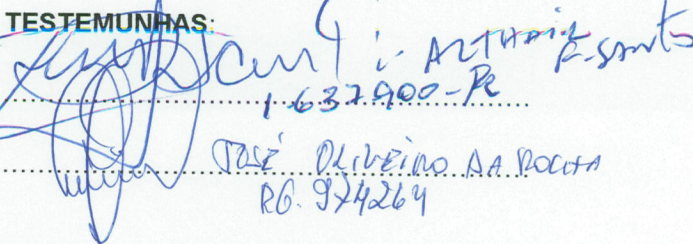 TESTEMUNHAS:
F. SANTOS
1.637.900-PE
JOSÉ OLIVEIRO DA ROCHA
RG. 974264